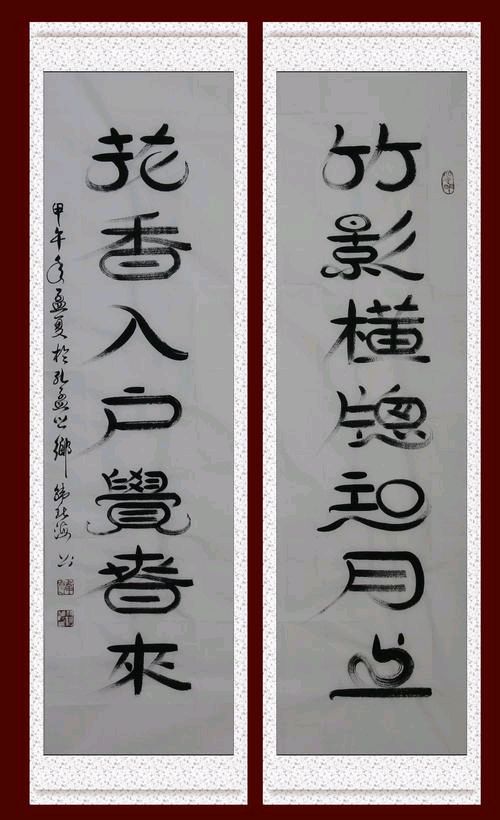 竹影橫牕知月上
花香入户覺春來
甲午年孟夏於孔孟之鄉